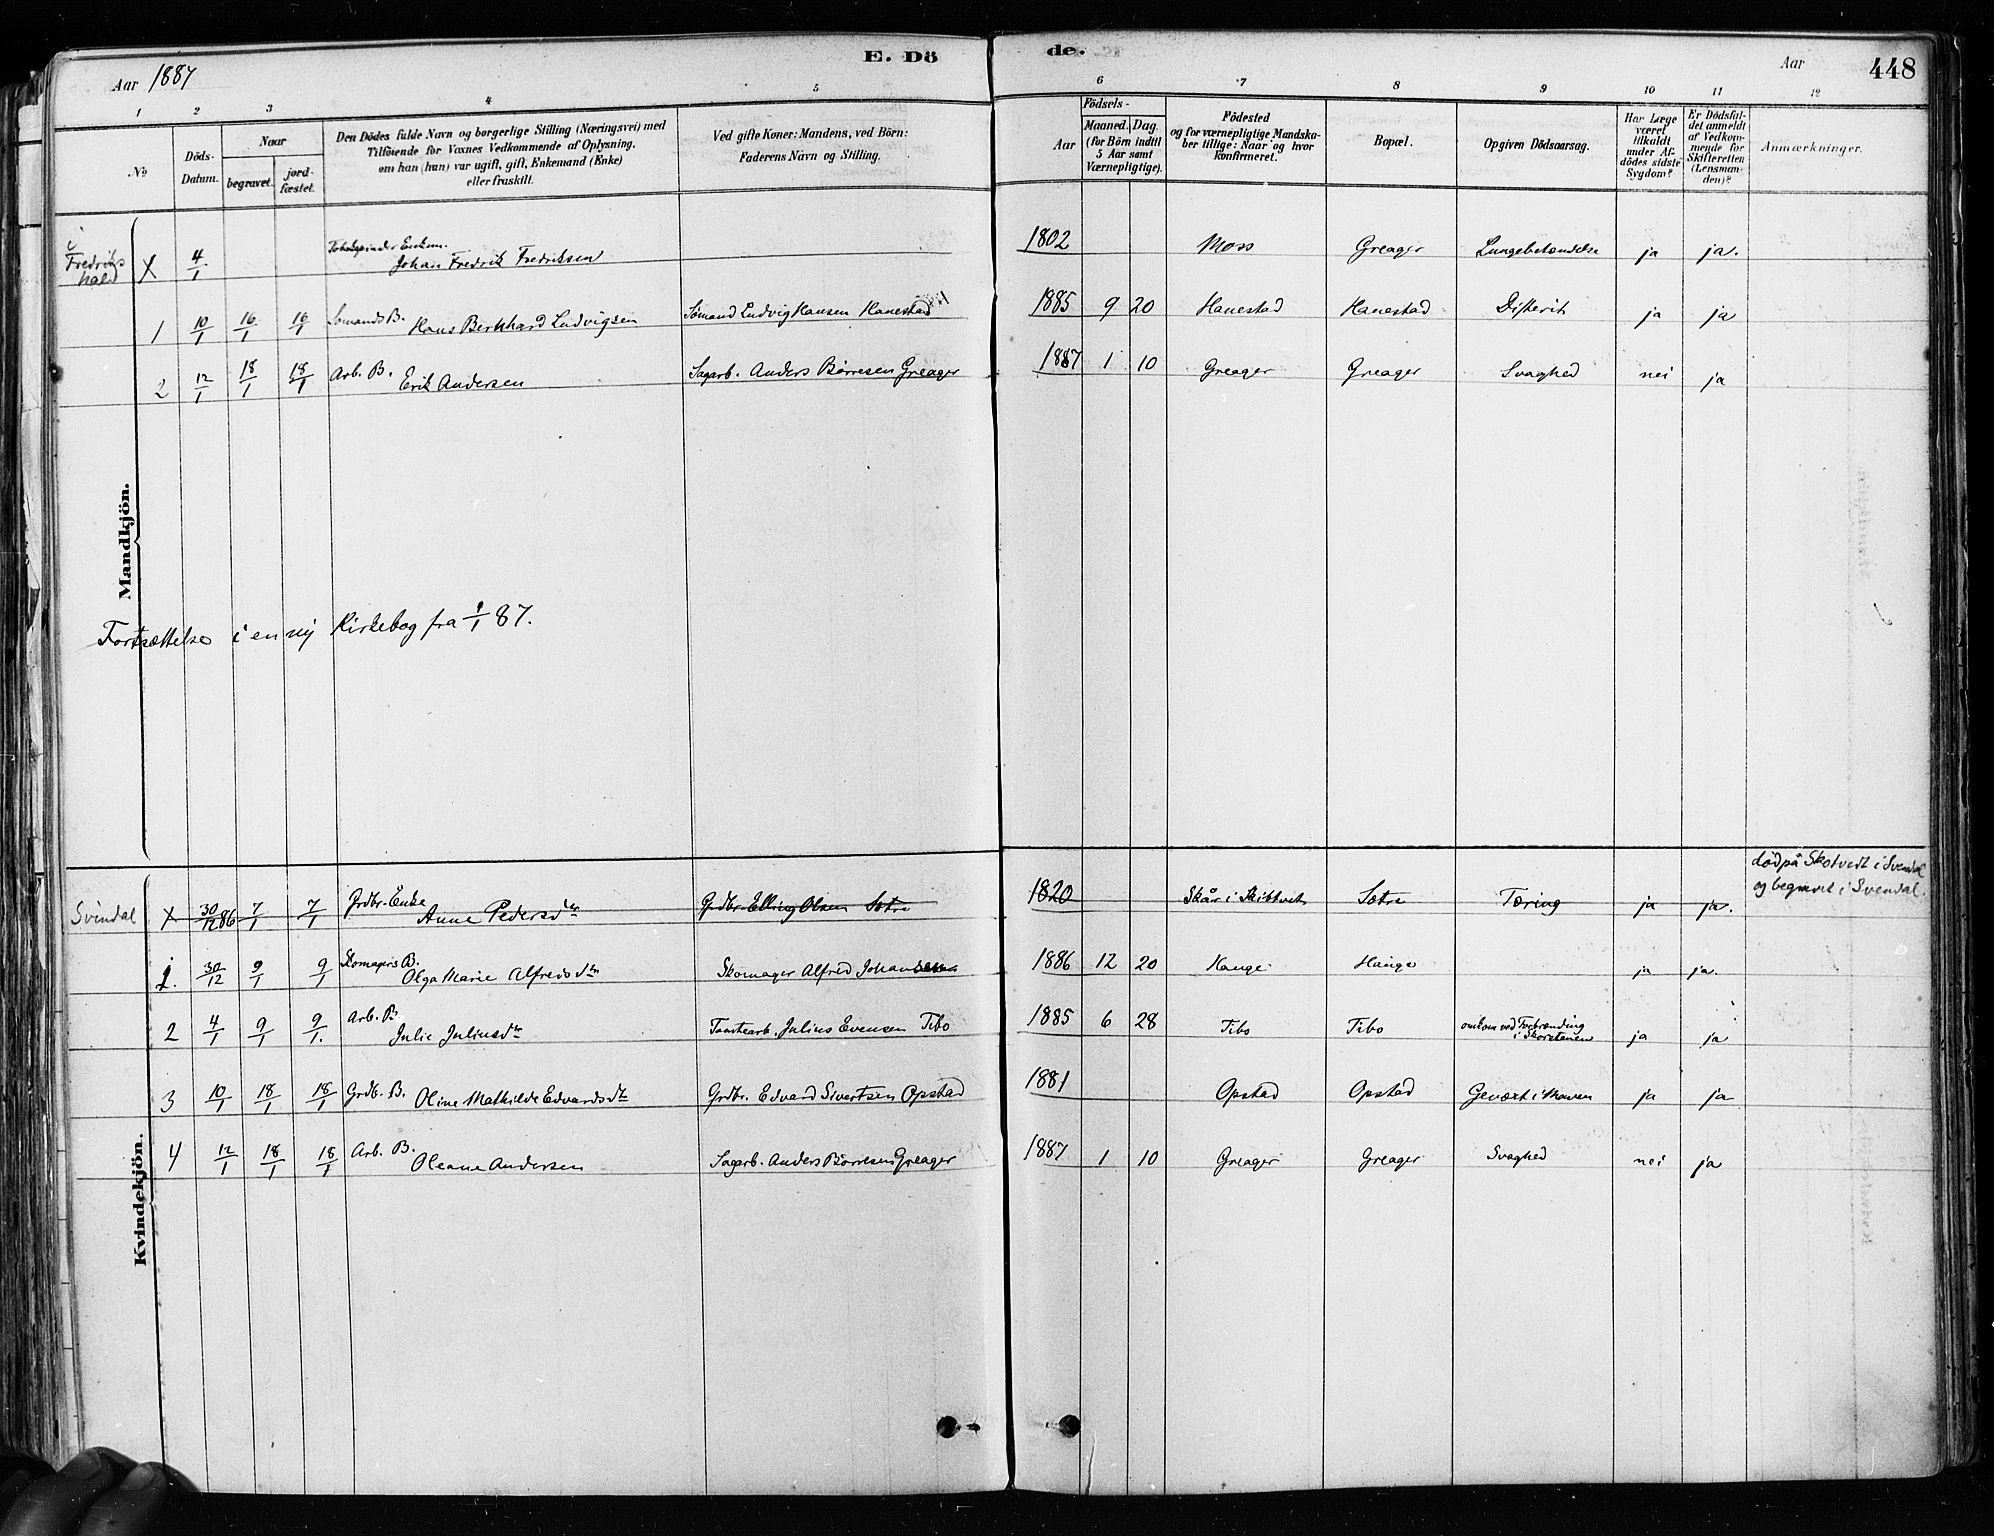 Aar 1887 E. Dö de. Aar 448
1 2 3 4 5 6 7 8 9 10 11 12
No
Döds-Datum.
Naar
begravet.
jord-fæstet.
Den Dödes fulde Navn og borgerlige Stilling (Næringsvei) med
Tilföiende for Voxnes Vedkommende af Oplysning,
om han (hun) var ugift, gift, Enkemand (Enke)
eller fraskilt.
Ved gifte Koner: Mandens, ved Börn:
Faderens Navn og Stilling.
Födsels-
Aar
Maaned. Dag.
(for Börn indtil
5 Aar samt
Værnepligtige).
Födested
og for værnepligtige Mandska-
ber tillige: Naar og hvor
konfirmeret.
Bopæl.
Opgiven Dödsaarsag.
Har Læge
været
tilkaldt
under Af-
dödes sidste
Sygdom?
Er Dödsfal-
det anmeldt
af Vedkom-
mende for
Skifteretten
(Lensman-
den)?
Anmærkninger.
Mandkjön.
i Fredriks hald X 4/1 Enkem. Johan Fredrik Fredriksen 1802 Moss Greager Lungebetændelse ja ja.
1 10/1 16/1 16/1 Sømands B. Hans Bernhard Ludvigsen Sømand Ludvig Hansen Hanestad 1885 9 20 Hanestad Hanestad Difterit ja ja
2 12/1 18/1 18/1 Arb. B. Erik Andersen Sagarb. Anders Børresen Greager 1887 1 10 Greager Greager Svaghed nei ja
Fortsættelse i en ny Kirkebog fra 1/1 87.
Kvindekjön.
Svindal X 30/12 86 7/1 7/1 Grdbr. Enke Anne Pedersdtr Grdbr. Elling Olsen Sætre 1820 Skår i Skibtvet Sætre Tæring ja ja. død på Skotvedt i Svendal
og begravet i Svendal.
1. 30/12 9/1 9/1 Skomagers B. Olga Marie Alfredsdtr Skomager Alfred Johansen 1886 12 20 Hauge Hauge ja ja.
2 4/1 9/1 9/1. Arb. B. Julie Juliusdtr Tomtearb. Julius Evensen Tibo 1885 6 28 Tibo Tibo omkom ved Forbrænding
i Skorstenen ja ja
3 10/1 18/1 18/1 Grdb. B. Oline Mathilde Edvardsdtr Grdbr. Edvard Sivertsen Opstad 1881 Opstad Opstad Gevæxt i Maven ja ja
4 12/1 18/1 18/1 Arb. B. Oleane Andersen Sagarb. Anders Børresen Greager 1887 1 10 Greager Greager Svaghed nei ja